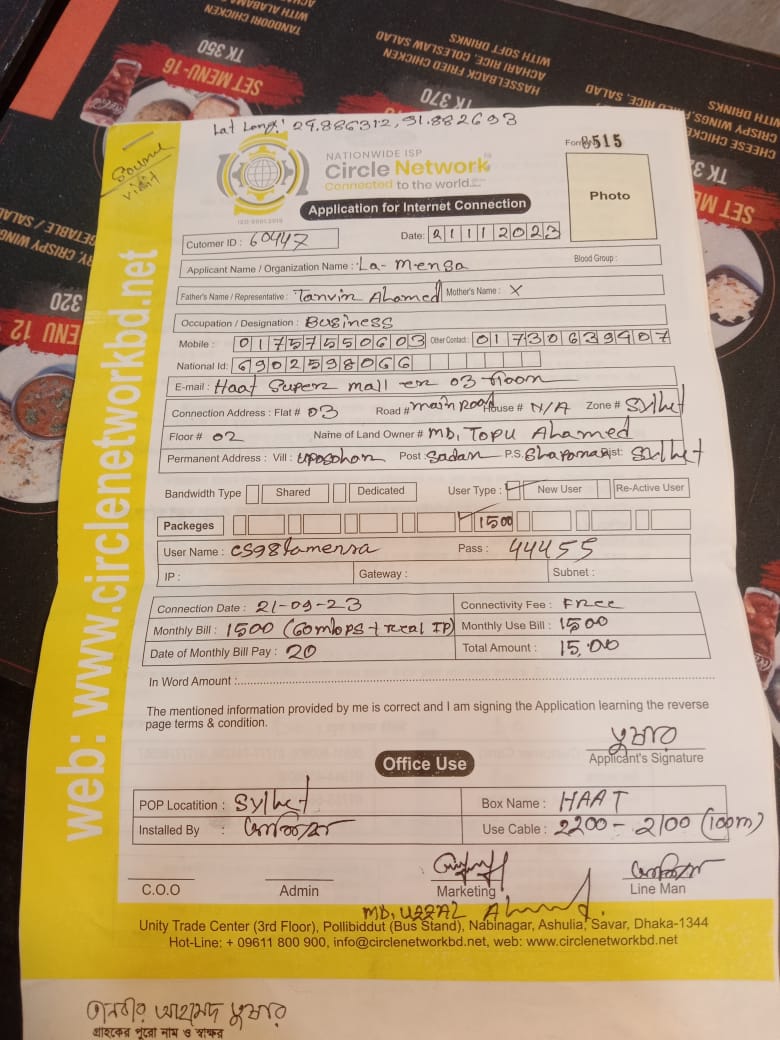 TANDOORI CHICKEN
WITH ALABAMA
TK 350
SET MENU-16
HASSELBACK FRIED CHICKEN
ACHARI RICE, COLESLAW SALAD
WITH SOFT DRINKS
TK 370
CHEESE CHICKEN
CRISPY WINGS, FRIED RICE, SALAD
WITH DRINKS
TK 3
SET ME
RY, CRISPY WING
GETABLE / SALAD
320
ENU 12
Lat Long: 29.886312, 91.882693
Visit
NATIONWIDE ISP
Circle Network
Connected to the world...
ISO 9001:2015
Form 8515
Photo
Application for Internet Connection
Cutomer ID : 60447
Date: 21112023
Applicant Name / Organization Name : La-Mensa
Blood Group :
Father's Name / Representative : Tanvir Ahamed Mother's Name : X
Occupation / Designation : Business
Mobile : 01757550603 Other Contact : 01730639907
National Id: 6902598066
E-mail : Haat Super mall er 03 floor
Connection Address : Flat # 03 Road # main Road House # N/A Zone # Sylhet
Floor # 02 Name of Land Owner # MD, Topu Ahamed
Permanent Address : Vill : Uposohor Post : Sadar P.S. Dist: Sylhet
Bandwidth Type Shared Dedicated User Type : New User Re-Active User
Packeges 1500
User Name : Pass : 44455
IP : Gateway : Subnet :
Connection Date : 21-09-23 Connectivity Fee : Free
Monthly Bill : 1500 (60mbps + real IP) Monthly Use Bill : 1500
Date of Monthly Bill Pay : 20 Total Amount : 15,00
In Word Amount :
The mentioned information provided by me is correct and I am signing the Application learning the reverse
page terms & condition.
তুষার
Applicant's Signature
Office Use
POP Locatition : Sylhet Box Name : HAAT
Installed By : Use Cable : 2200 - 2100 (100m)
C.O.O Admin Marketing Line Man
MD, UZZAL Ahmed.
Unity Trade Center (3rd Floor), Pollibiddut (Bus Stand), Nabinagar, Ashulia, Savar, Dhaka-1344
Hot-Line: + 09611 800 900, info@circlenetworkbd.net, web: www.circlenetworkbd.net
web: www.circlenetworkbd.net
তানবীর আহমেদ তুষার
গ্রাহকের পুরো নাম ও স্বাক্ষর